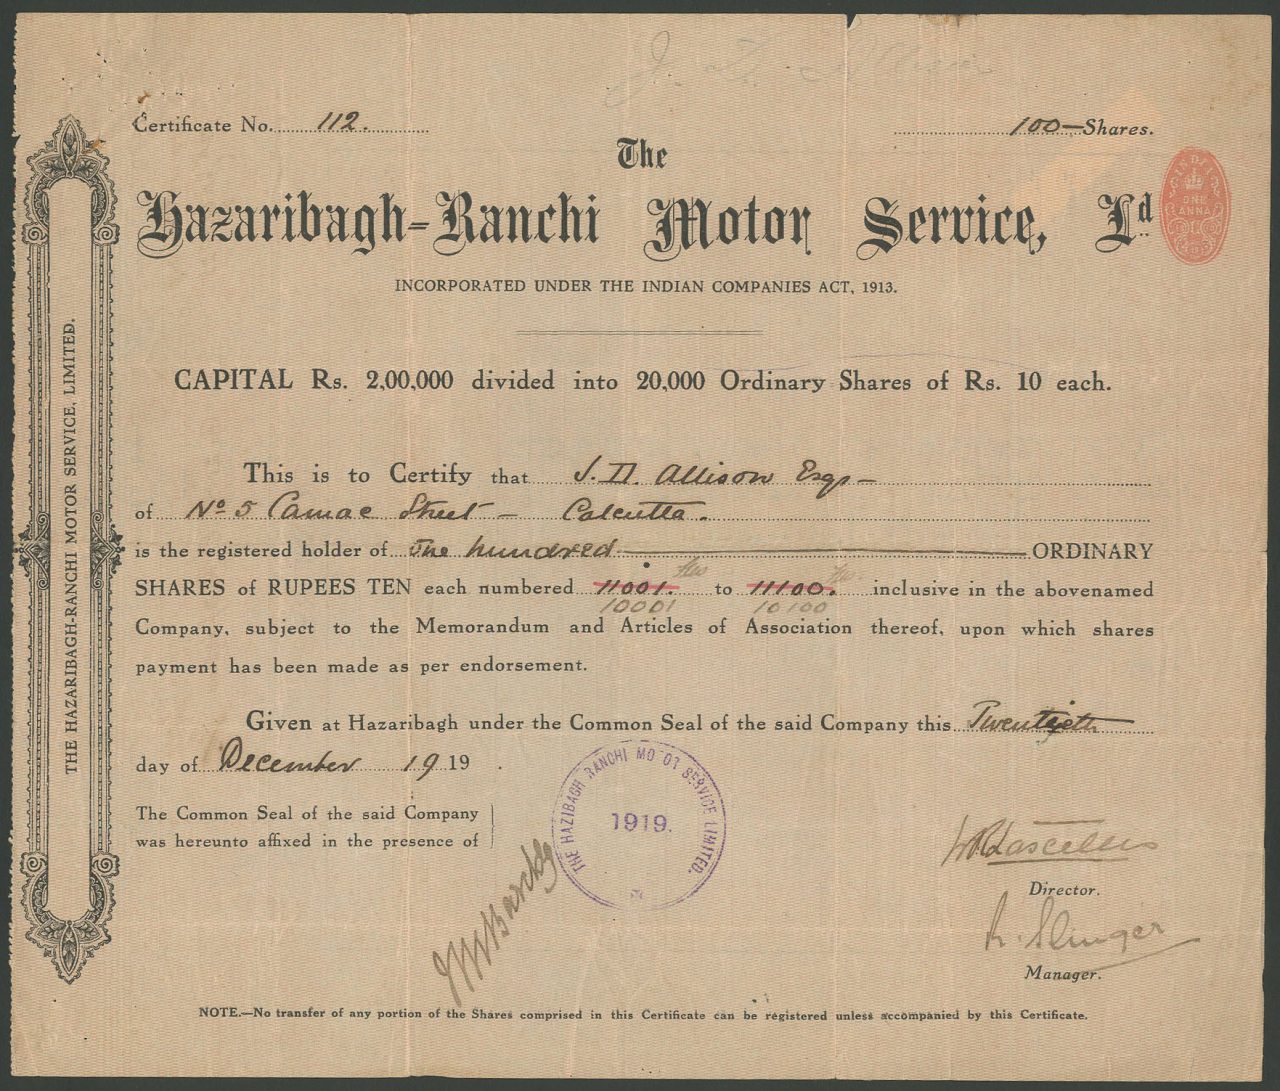 Certificate No. 112.
100— Shares.
The
Hazaribagh-Ranchi Motor Service, Ld
INDIA
ONE
ANNA
INCORPORATED UNDER THE INDIAN COMPANIES ACT, 1913.
CAPITAL Rs. 2,00,000 divided into 20,000 Ordinary Shares of Rs. 10 each.
This is to Certify that J. D. Allison Esqr—
of No 5 Camac Street — Calcutta.
is the registered holder of One hundred — ORDINARY
SHARES of RUPEES TEN each numbered 11001. to 11100. inclusive in the abovenamed
10001 10100
Company, subject to the Memorandum and Articles of Association thereof, upon which shares
payment has been made as per endorsement.
Given at Hazaribagh under the Common Seal of the said Company this Twentieth
day of December 19 19
The Common Seal of the said Company
was hereunto affixed in the presence of
THE HAZIBAGH RANCHI MOTOT SERVICE LIMITED.
1919.
Director.
R. Slinger
Manager.
NOTE.—No transfer of any portion of the Shares comprised in this Certificate can be registered unless accompanied by this Certificate.
THE HAZARIBAGH-RANCHI MOTOR SERVICE, LIMITED.